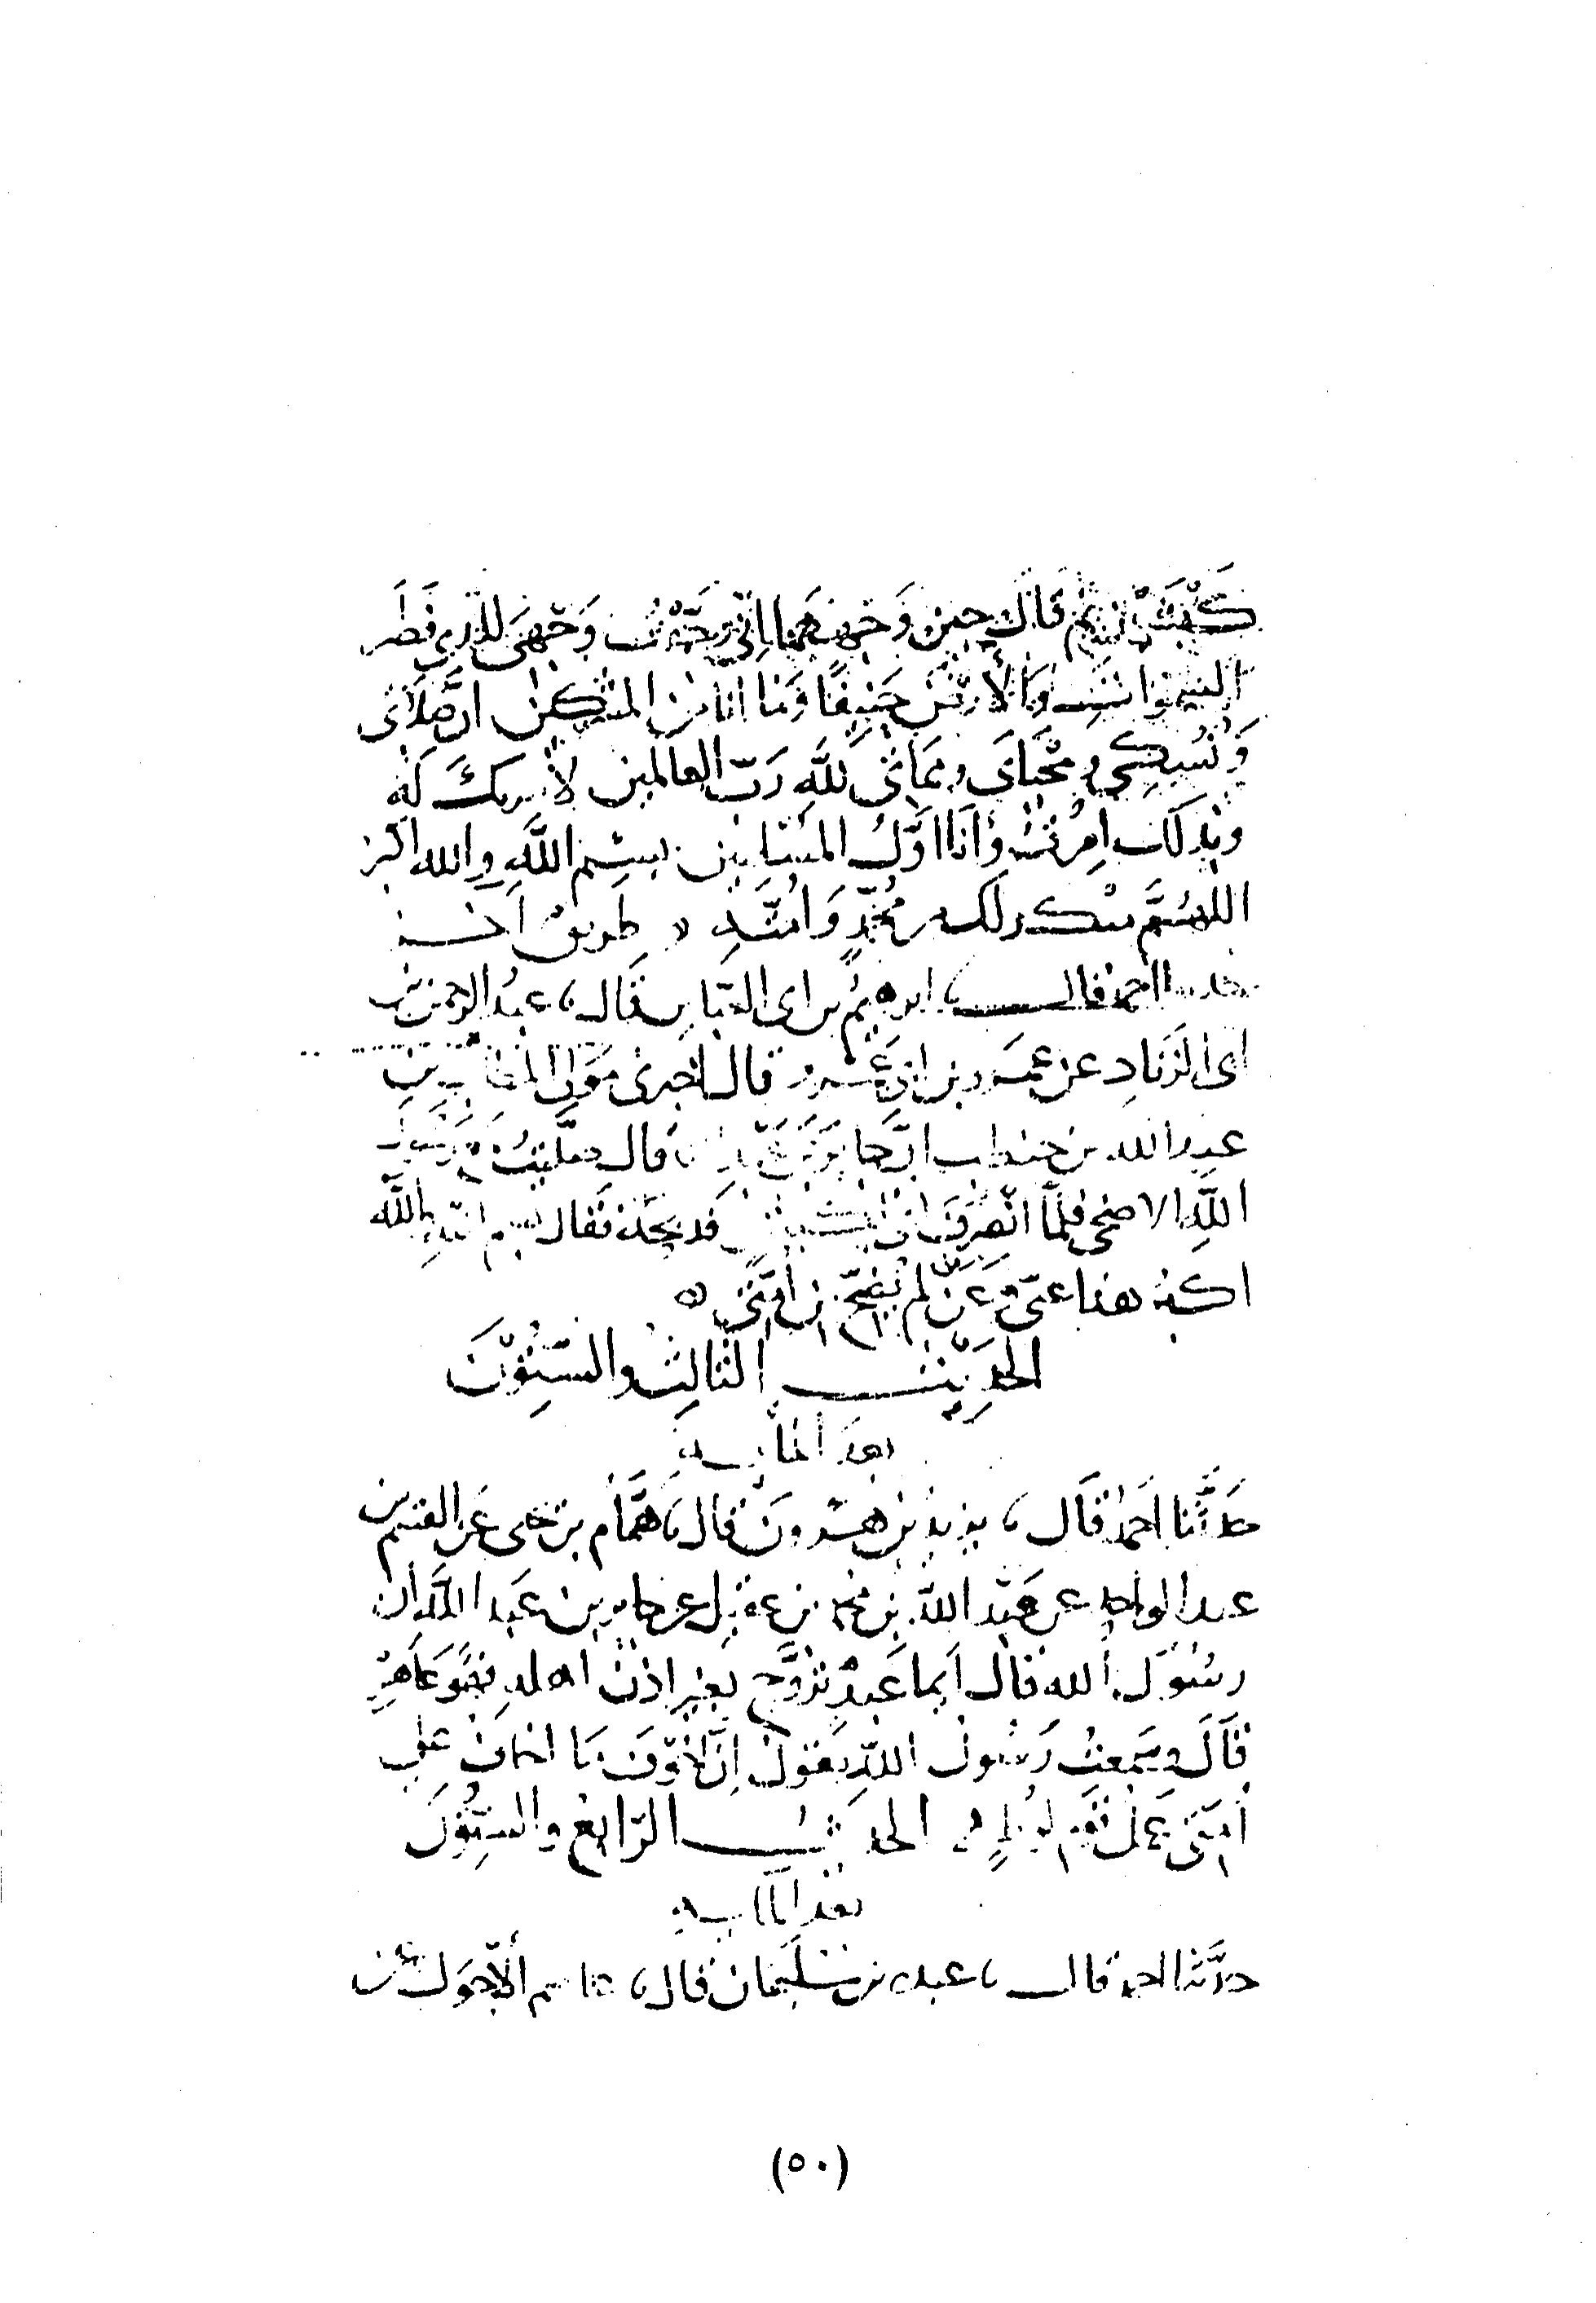 كبشين ثم قال حين وجههما اني وجهت وجهي للذي فطر
السموات والأرض حنيفًا وما انا من المشركين ان صلاتي
ونسكي ومحياي ومماتي لله رب العالمين لا شريك له
وبذلك امرت وأنا اول المسلمين بسم الله والله اكبر
اللهم منك ولك عن محمد وامته طريق آخر
حدثنا احمد قال ثنا ابرهيم بن ابي العباس قال ثنا عبد الرحمن بن
ابي الزناد عن عمرو بن ابي عمرو قال اخبرني مولاي المطلب بن
عبد الله بن حنطب ان جابر بن عبد الله قال صليت مع رسول
الله الاضحى فلما انصرف اتي بكبش فذبحه فقال بسم الله والله
اكبر هذا عني وعمن لم يضح من أمتي
الحديث الثالث والستون
بعد المايه
حدثنا احمد قال ثنا يزيد بن هرون قال ثنا همام بن يحيى عن القسم بن
عبد الواحد عن عبد الله بن محمد بن عقيل عن جابر بن عبد الله أن
رسول الله قال أيما عبد تزوج بغير اذن اهله فهو عاهر
قال وسمعت رسول الله يقول إن أخوف ما اخاف على
أمتي عمل قوم لوط الحديث الرابع والستون
بعد المايه
حدثنا احمد قال ثنا عبده بن سليمان قال ثنا عاصم الأحول عن
(٥٠)